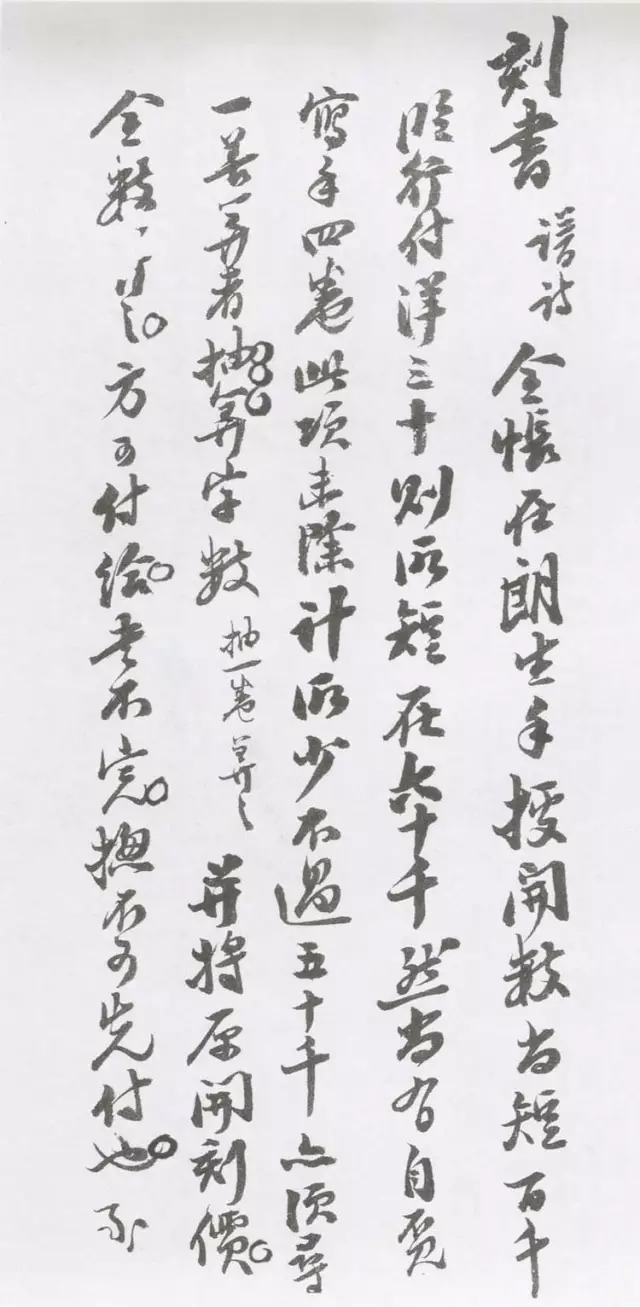 刻書 譜詩 全帳在朗生手授開數尚短百千
臨行付洋三十則所短在六十千然尚有自覓
寫手四卷此項未除計所少不過五十千亦須尋
一善算者抽算字數 抽一卷算之 并將原開刻價
全數 方可付給書不完揔不可先付也